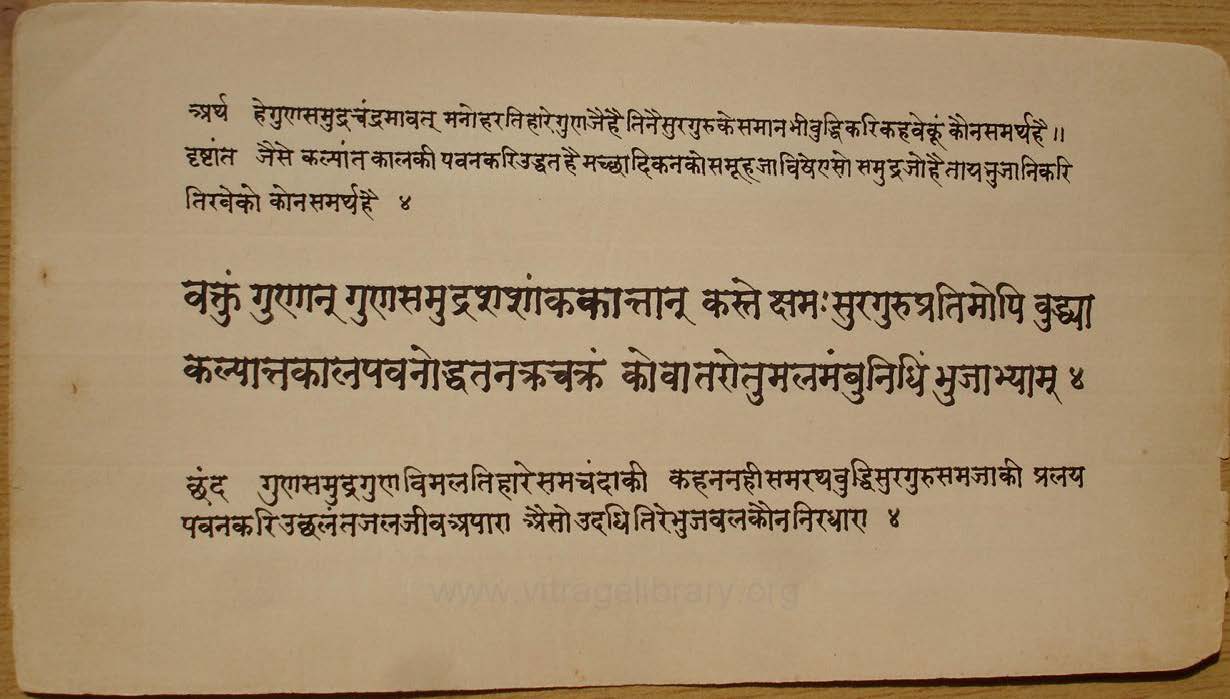 अर्थ हेगुणसमुद्रचंद्रमावत् मनोहरतिहारेगुणजैहैं तिनैसुरगुरुकेसमानभीवुद्धिकरिकहवेकूं कौनसमर्थहै॥
दृष्टांत जैसे कल्पांतकालकी पवनकरिउद्धतहै मच्छादिकनकोसमूहजाविषेएसो समुद्रजोहैतायभुजानिकरि
तिरवेको कोनसमर्थहै ४
वक्तुं गुणान् गुणसमुद्रशशांककान्तान् कस्ते क्षमःसुरगुरुप्रतिमोपि वुद्ध्या
कल्पान्तकालपवनोद्धतनक्रचक्रं कोवातरोतुमलमंबुनिधिं भुजाभ्याम् ४
छंद गुणसमुद्रगुणविमलतिहारेसमचंदाकी कहननहीसमरथवुद्धिसुरगुरुसमजाकी प्रलय
पवनकरिउछलंतजलजीवअपारा अैसोउदधितिरेभुजवलकौननिरधारा ४
www.vitragelibrary.org